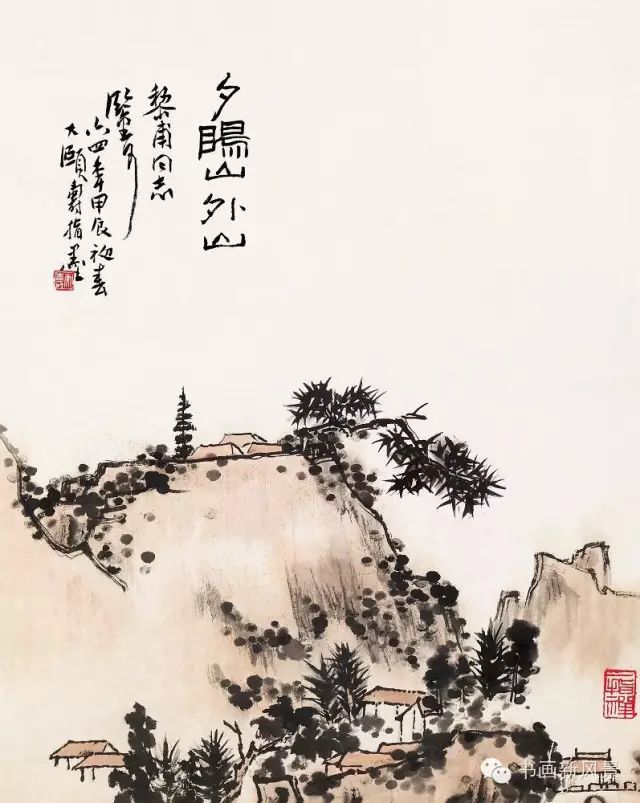 夕暘山外山
黎甫同志
六四年甲辰初春
大頤壽指墨
书画新风景